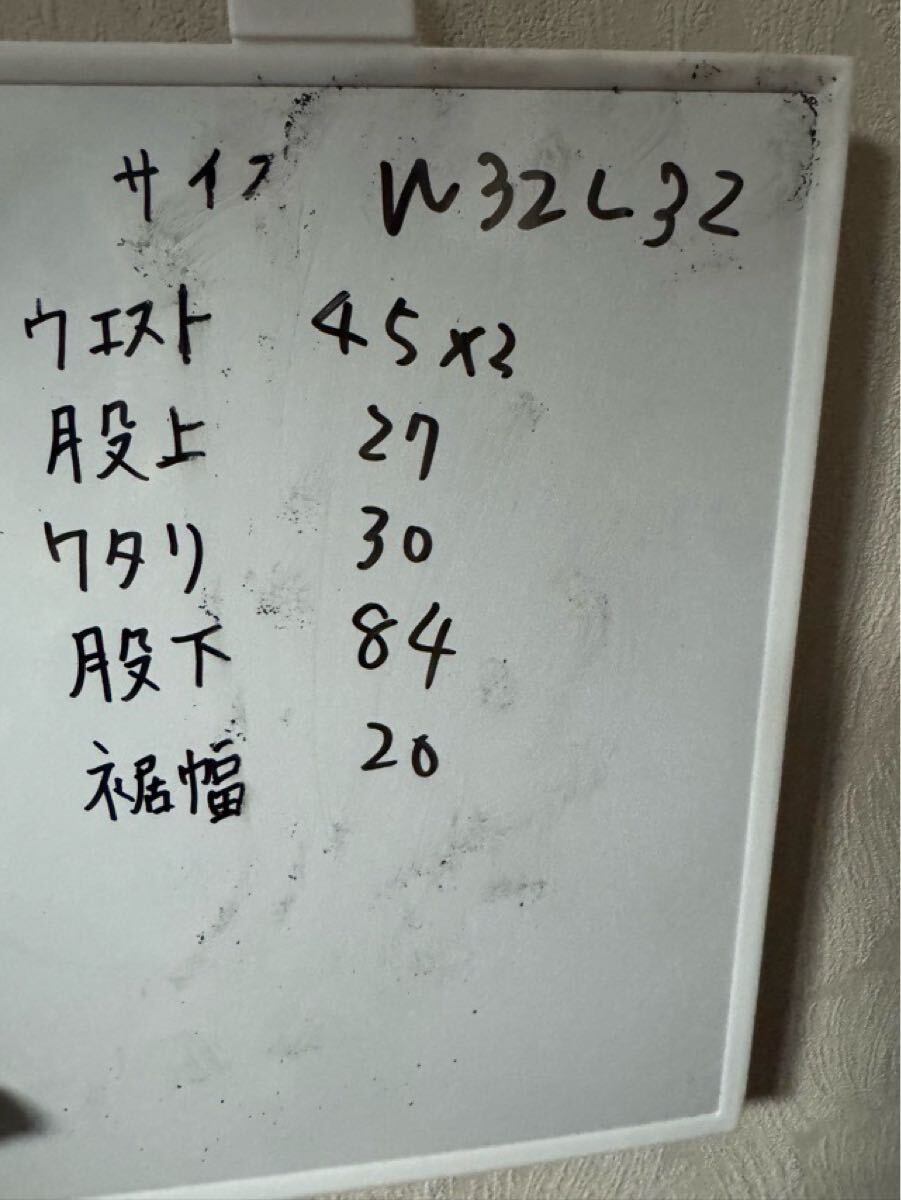 サイズ W32L32
ウエスト 45×2
股上 27
ワタリ 30
股下 84
裾幅 20